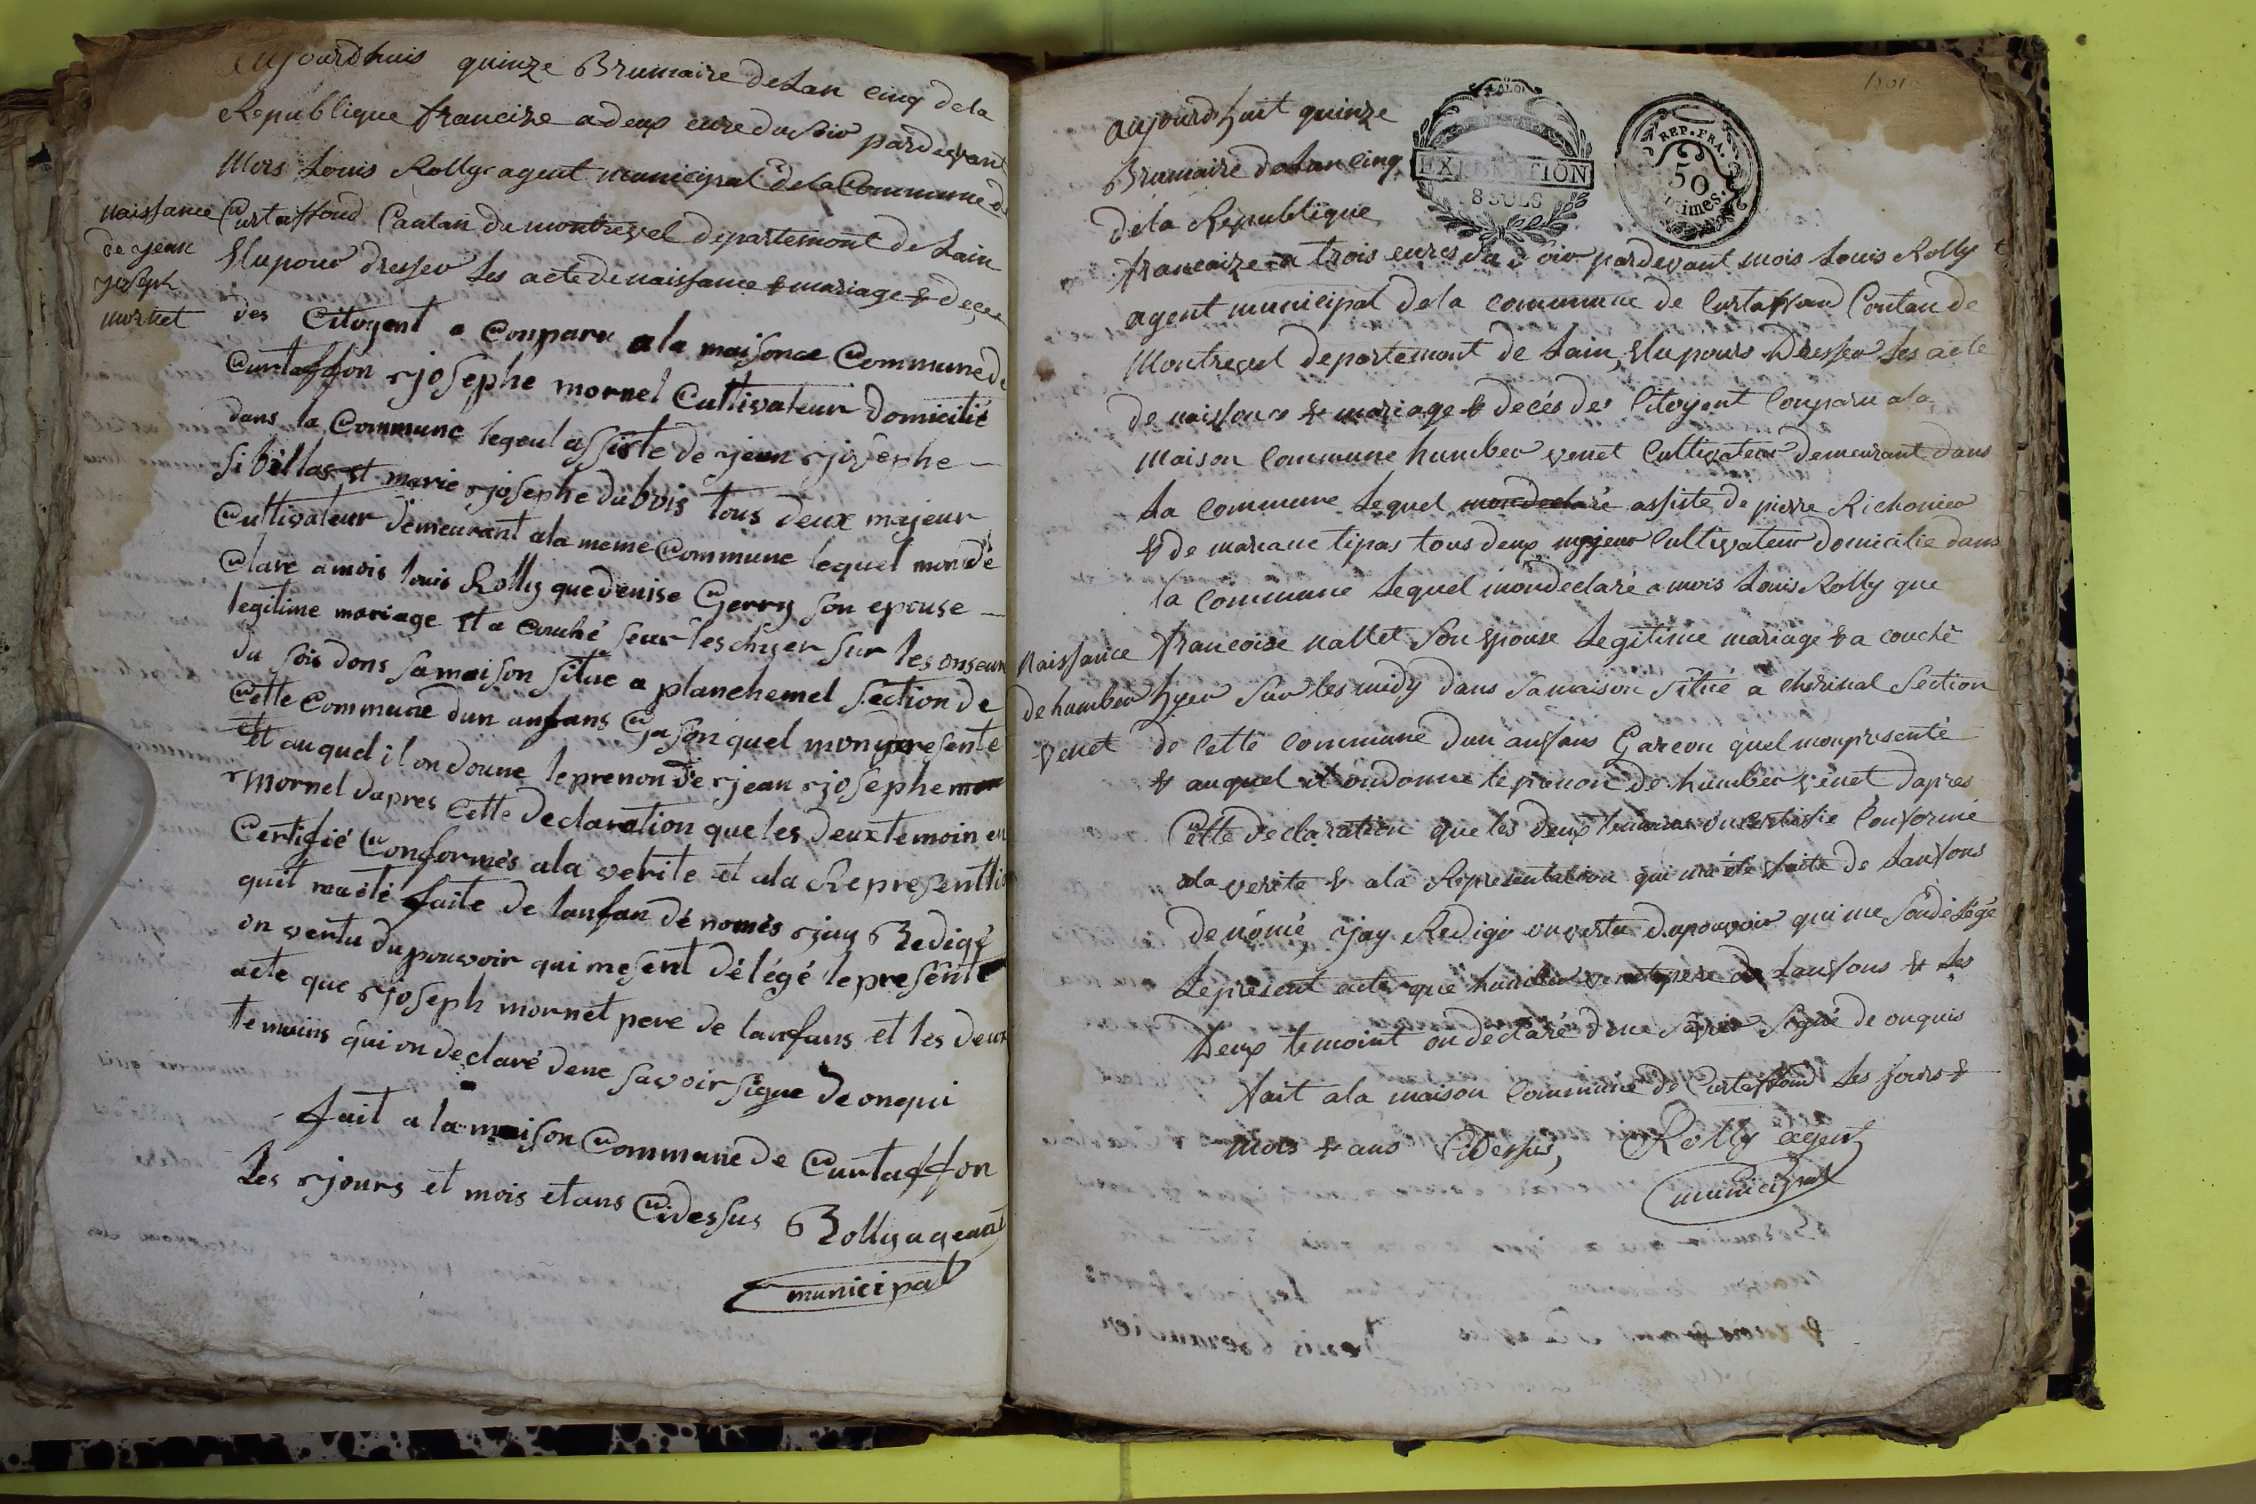 aujourdhuis quinze Brumaire de Lan cinq de la
Republique francize a deux eure du soir pardevant
Mois Louis Rolly agent municipal de la Commune de
Curtaffoud Cantan de montrevel departement de Lain
Elu pour dresser Les acte de naissance & mariage & deçes
des Citoyent a Conparu a la maisonce Commune de
Curtaffon josephe mornel Cultivateur domicilié
dans la Commune lequel assiste de jean josephe
Sibillas et marie josephe dubois tous deux majeur
Cultivateur demeurant ala meme Commune lequel mon dé
Claré a mois louis Rolly que denise Gerry son epouse
legitime mariage et a couché seur les chyer sur les onseure
du sois dans sa maison situe a planchemel section de
Cette Commune dun anfans Gason quel mon presente
Et auquel il on donne le prenon de jean josephe
Mornel dapres Cette declaration que les deux temoin on
Certifié Conformés ala verite et ala Representtion
quit ma été faite de lanfan dé només jay Redigé
on vertu du pouvoir qui mesent délégé le presente
acte que joseph mornet pere de lanfans et les deux
temoiins qui on declaré dene savoir signe de onqui
fait a la maison Commune de Curtaffon
Les jours et mois et ans Cidessus Rolly ageant
municipal
naissance
de jean
joseph
mornet
aujourdhuit quinze
Brumaire de Lan cinq
de la Republique
francaize a trois eures du soir pardevant mois Louis Rolly
agent municipal de la commune de Curtaffoud Contan de
Montrevel departement de Lain, Elu pours Dresser Les acte
de naissance & mariage & decés des Citoyent Conparu ala
maison Commune humber venet Cultivateur demeurant dans
La commune Lequel mondeclaré assiste de pierre Richonier
& de mariane tipas tous deux majeur Cultivateur domicilie dans
la Commune Lequel mondeclaré a mois Louis Rolly que
francoise nallet son Epouse Legitime mariage & a couché
hyer sur les midy dans sa maison situé a cherinal Section
de Cette Commune dun anfans Garcon quel mon presenté
& auquel il on donne le prenon de humber venet dapres
Cette declaration que les deux temoins on certifie Conforme
ala verite & ala Representation qui ma été faite de Lanfans
denomé, jay Redigé on vertu du pouvoir qui me son délégé
Le present acte que humber venet pere de Lanfans & Les
Deux temoint on declaré dene savoir signé de onquis
fait ala maison Commune de Curtaffoud Les jours &
mois & ans Cidessus, Rolly agent
municipal
Naissance
de humber
venet
8 SOLS
REP. FRA.
50